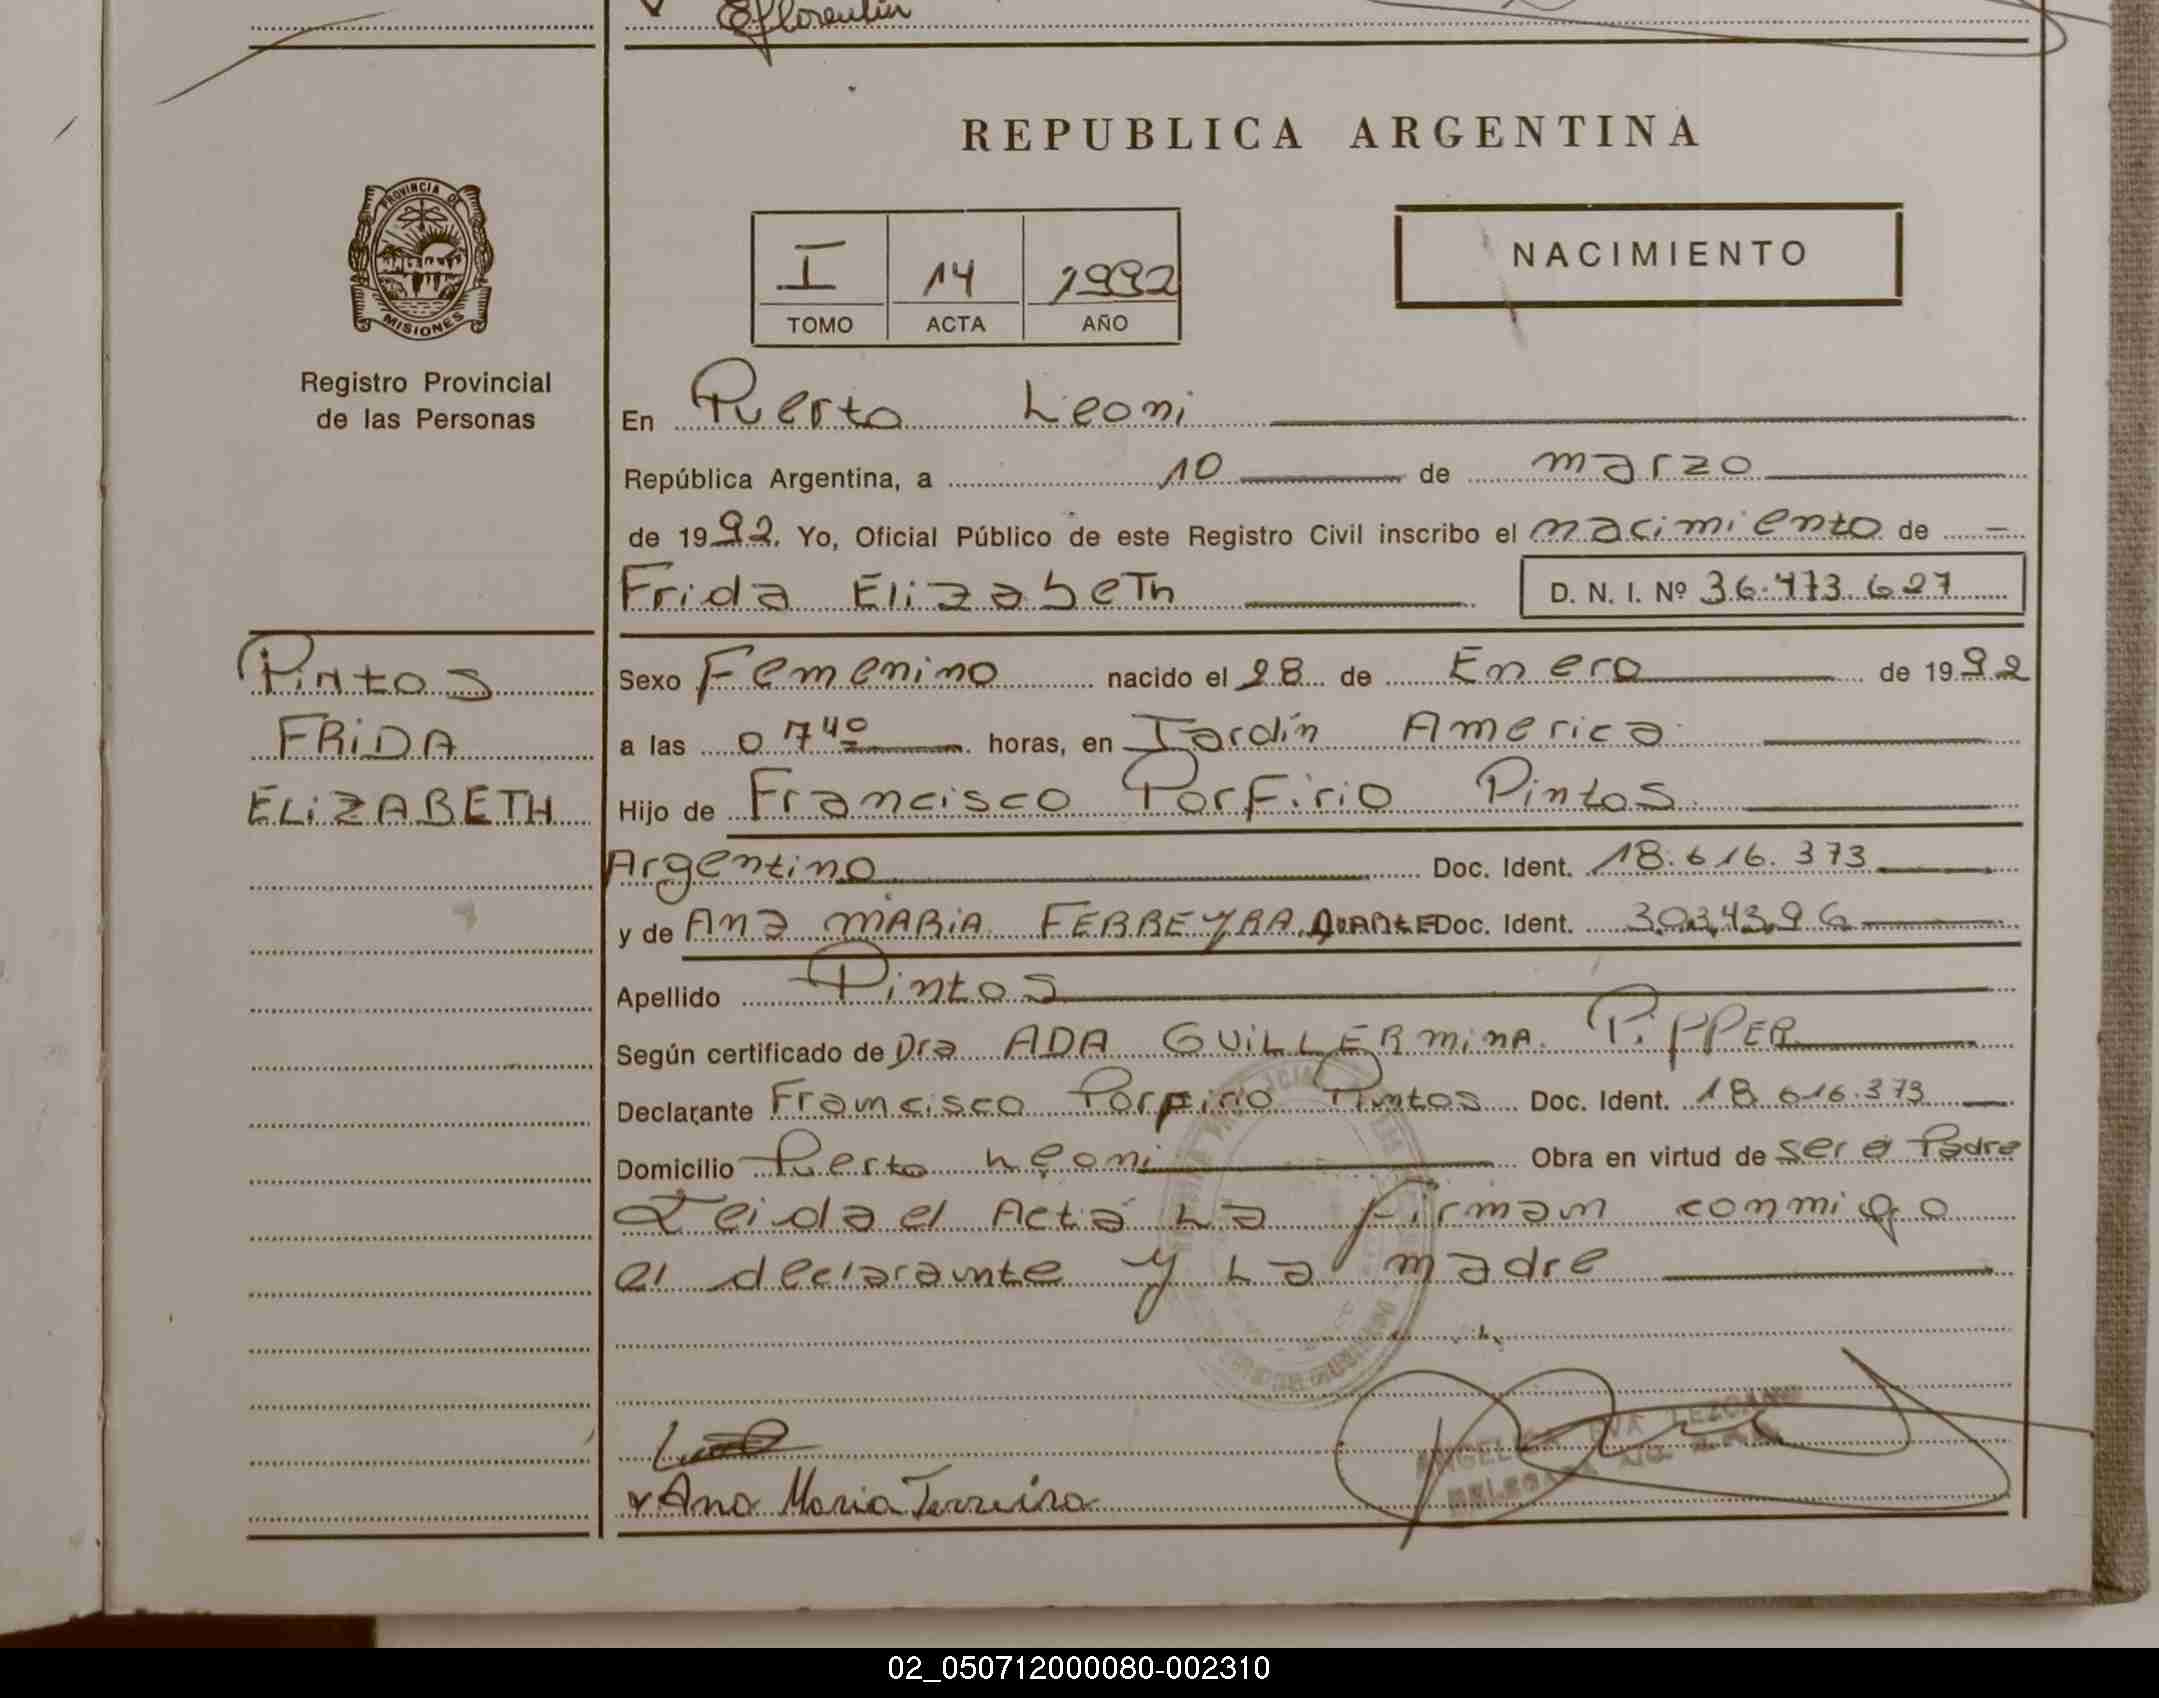 Eflorentin
REPUBLICA ARGENTINA
PROVINCIA DE
MISIONES
Registro Provincial
de las Personas
I 14 1992
TOMO ACTA AÑO
NACIMIENTO
En Puerto Leoni
República Argentina, a 10 de marzo
de 1992. Yo, Oficial Público de este Registro Civil inscribo el nacimiento de
Frida Elizabeth D. N. I. Nº 36.473.627
Pintos
FRIDA
ELIZABETH
Sexo Femenino nacido el 28 de Enero de 1992
a las 0740 horas, en Jardín America
Hijo de Francisco Porfirio Pintos
Argentino Doc. Ident. 18.616.373
y de Ana MARIA FERREYRA DUARTE Doc. Ident. 3034396
Apellido Pintos
Según certificado de Dra ADA GUILLERMINA PIPPER
Declarante Francisco Porfirio Pintos Doc. Ident. 18.616.373
Domicilio Puerto Leoni Obra en virtud de ser el Padre
Leida el Acta La firman conmigo
el declarante y La madre
ANGELICA EVA LEZCANO
DELEGADA
Ana Maria Ferreira
02_050712000080-002310